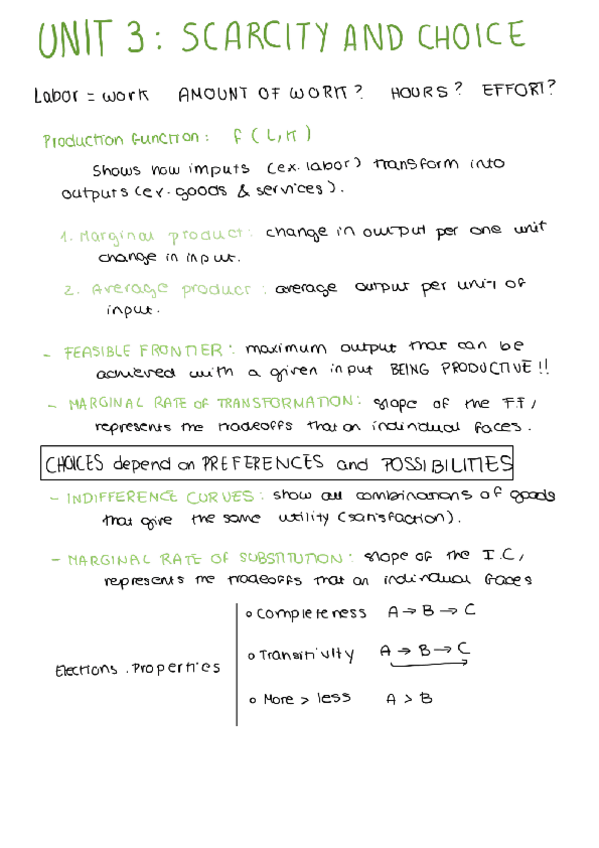 UNIT 3: SCARCITY AND CHOICE
Labor = work AMOUNT OF WORK? HOURS? EFFORT?
Production function: f(L,K)
Shows how imputs (ex. labor) transform into
outputs (ex. goods & services).
1. Marginal product: change in output per one unit
change in input.
2. Average product: average output per unit of
input.
- FEASIBLE FRONTIER: maximum output that can be
achieved with a given input BEING PRODUCTIVE!!
- MARGINAL RATE OF TRANSFORMATION: slope of the F.F,
represents the tradeoffs that an individual faces.
CHOICES depend on PREFERENCES and POSSIBILITIES
- INDIFFERENCE CURVES: show all combinations of goods
that give the same utility (satisfaction).
- MARGINAL RATE OF SUBSTITUTION: slope of the I.C,
represents the tradeoffs that an individual faces
Completeness A → B → C
Transitivity A → B → C
Elections. Properties
More > less A > B